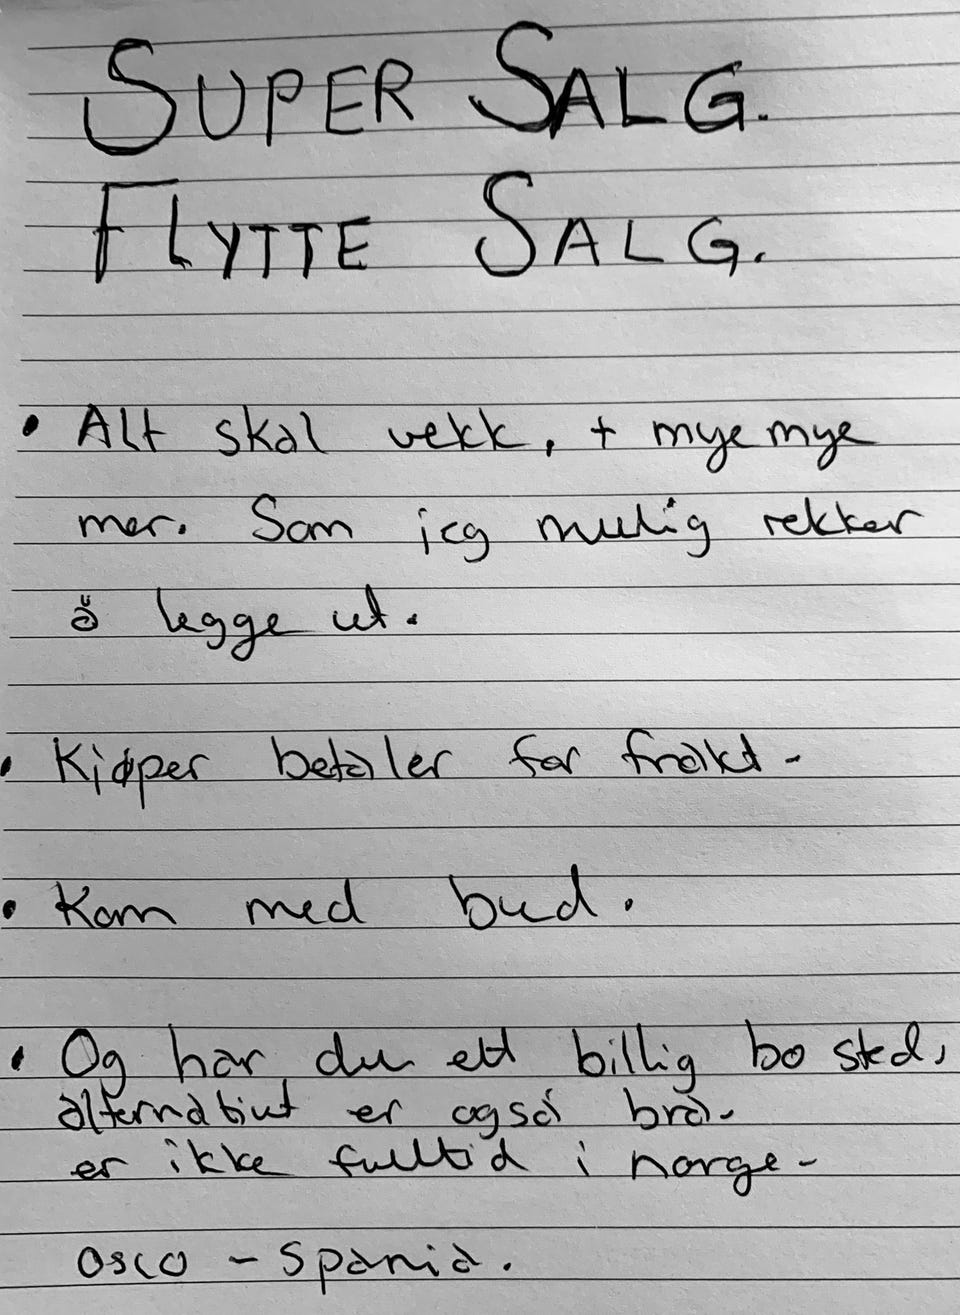 SUPER SALG.
FLYTTE SALG.
• Alt skal vekk, + mye mye
mer. Som jeg mulig rekker
å legge ut.
• Kjøper betaler for frakt-
• Kom med bud.
• Og har du ett billig bo sted,
alternativt er også bra-
er ikke fulltid i norge-
OSLO - Spania.